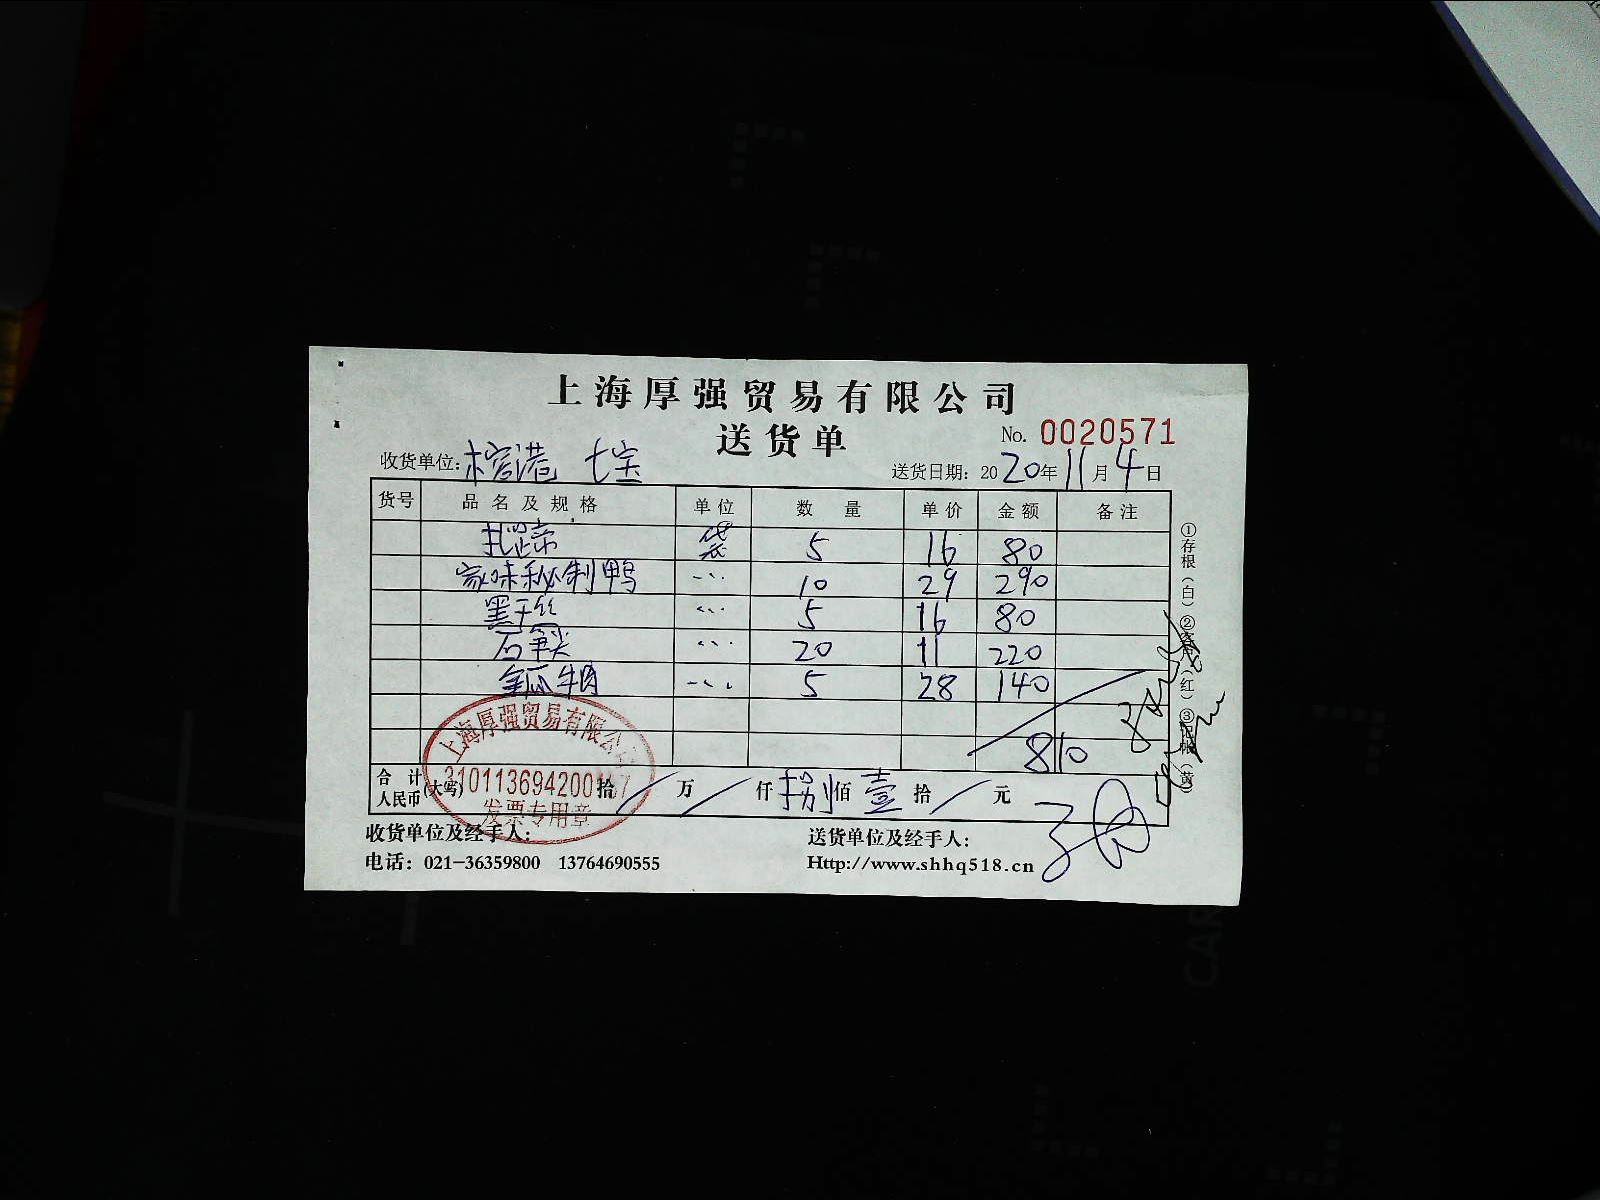 上海厚强贸易有限公司
送货单
No. 0020571
收货单位: 榕港 七宝
送货日期: 2020年11月4日
货号 品名及规格 单位 数量 单价 金额 备注
扎蹄 袋 5 16 80
家味秘制鸭 〃 10 29 290
黑干丝 〃 5 16 80
石笋尖 〃 20 11 220
牛肉 〃 5 28 140
810
上海厚强贸易有限公司
发票专用章
合计人民币(大写) 拾/万/仟捌佰壹拾/元
收货单位及经手人:
送货单位及经手人:
电话: 021-36359800 13764690555
Http://www.shhq518.cn
①存根(白)②客户(红)③记帐(黄)